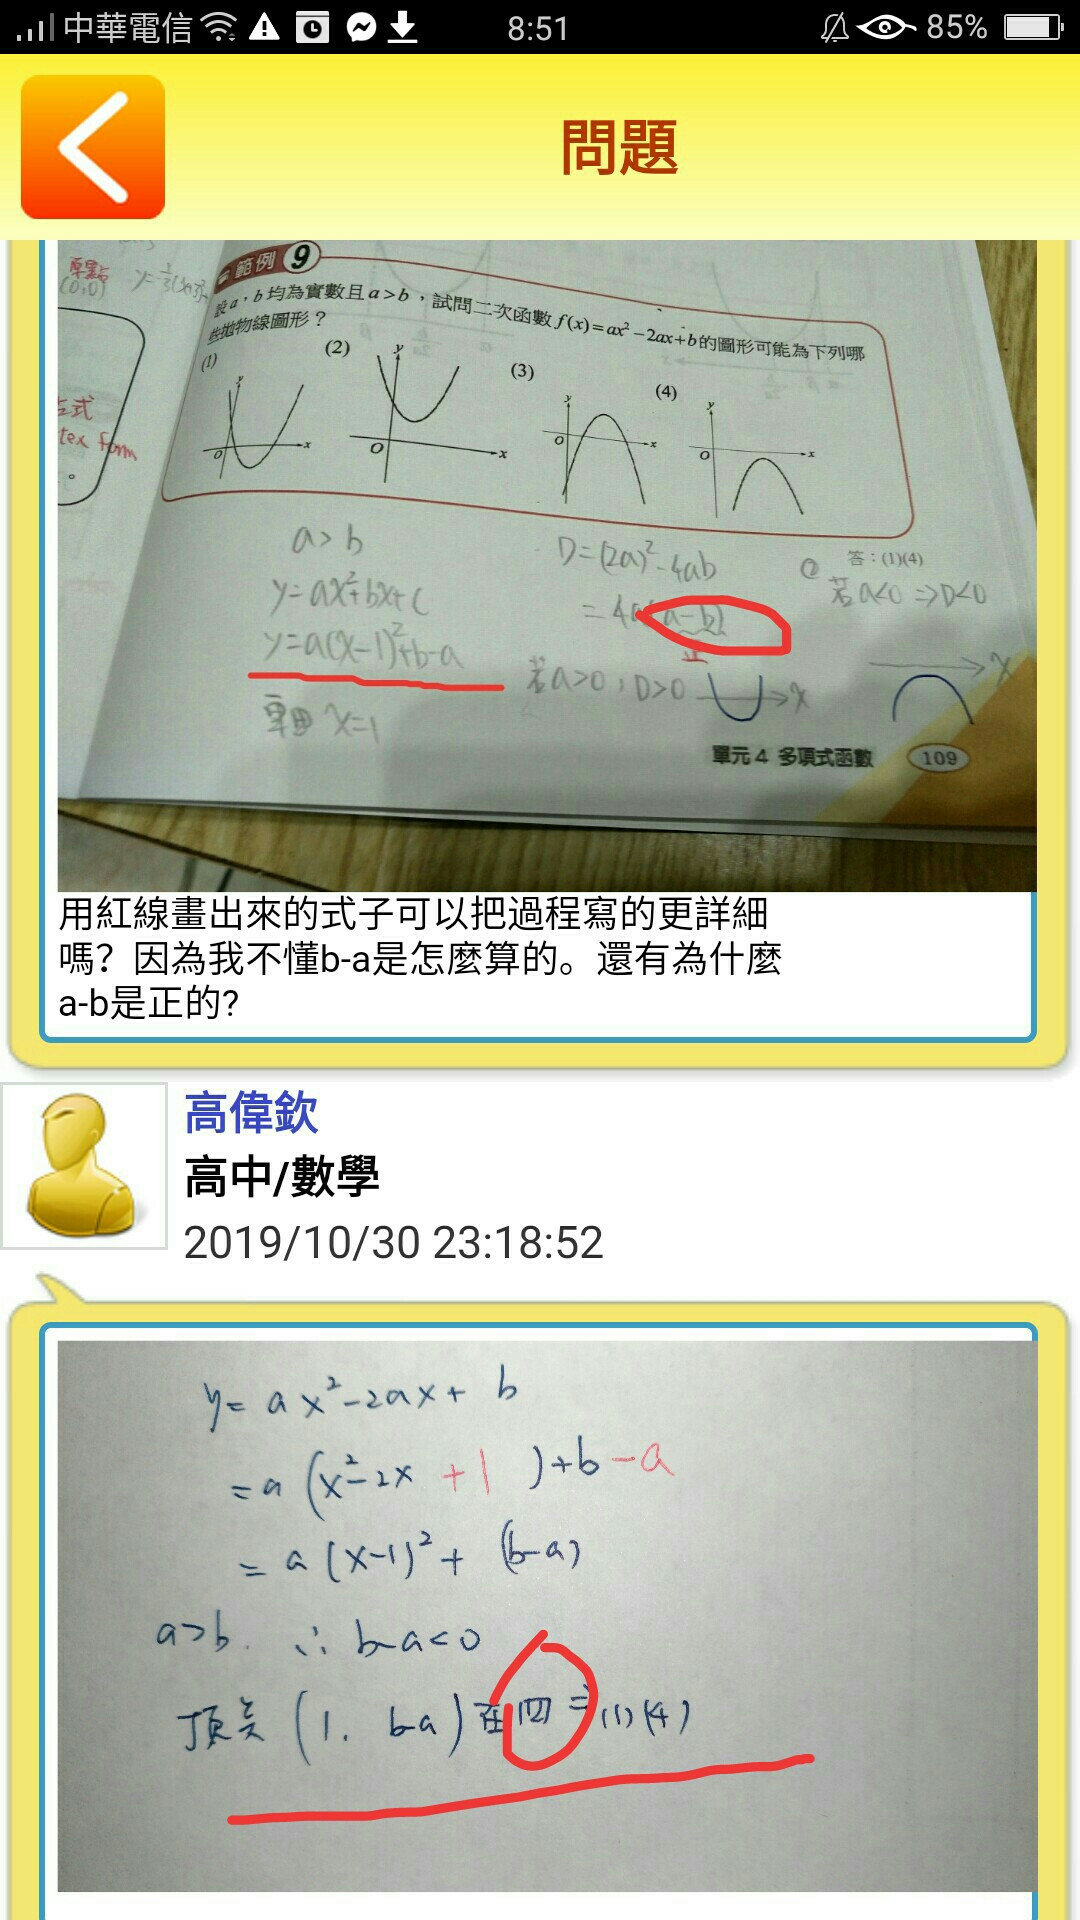 中華電信 8:51 85%
問題
範例 9
設a，b均為實數且a>b，試問二次函數f(x)=ax²-2ax+b的圖形可能為下列哪
些拋物線圖形？
(1) (2) (3) (4)
y y y y
O x O x O x O x
(0,0)
tex form
a>b
y=ax²+bx+c
y=a(x-1)²+b-a
軸 x=1
D=(2a)²-4ab
=4a(a-b)
正
若a>0，D>0 x
答：(1)(4)
若a<0 ⇒D<0
x
單元4 多項式函數 109
用紅線畫出來的式子可以把過程寫的更詳細
嗎？因為我不懂b-a是怎麼算的。還有為什麼
a-b是正的?
高偉欽
高中/數學
2019/10/30 23:18:52
y=ax²-2ax+b
=a(x²-2x+1)+b-a
=a(x-1)²+(b-a)
a>b. ∴b-a<0
頂點(1, b-a)在四⇒(1)(4)